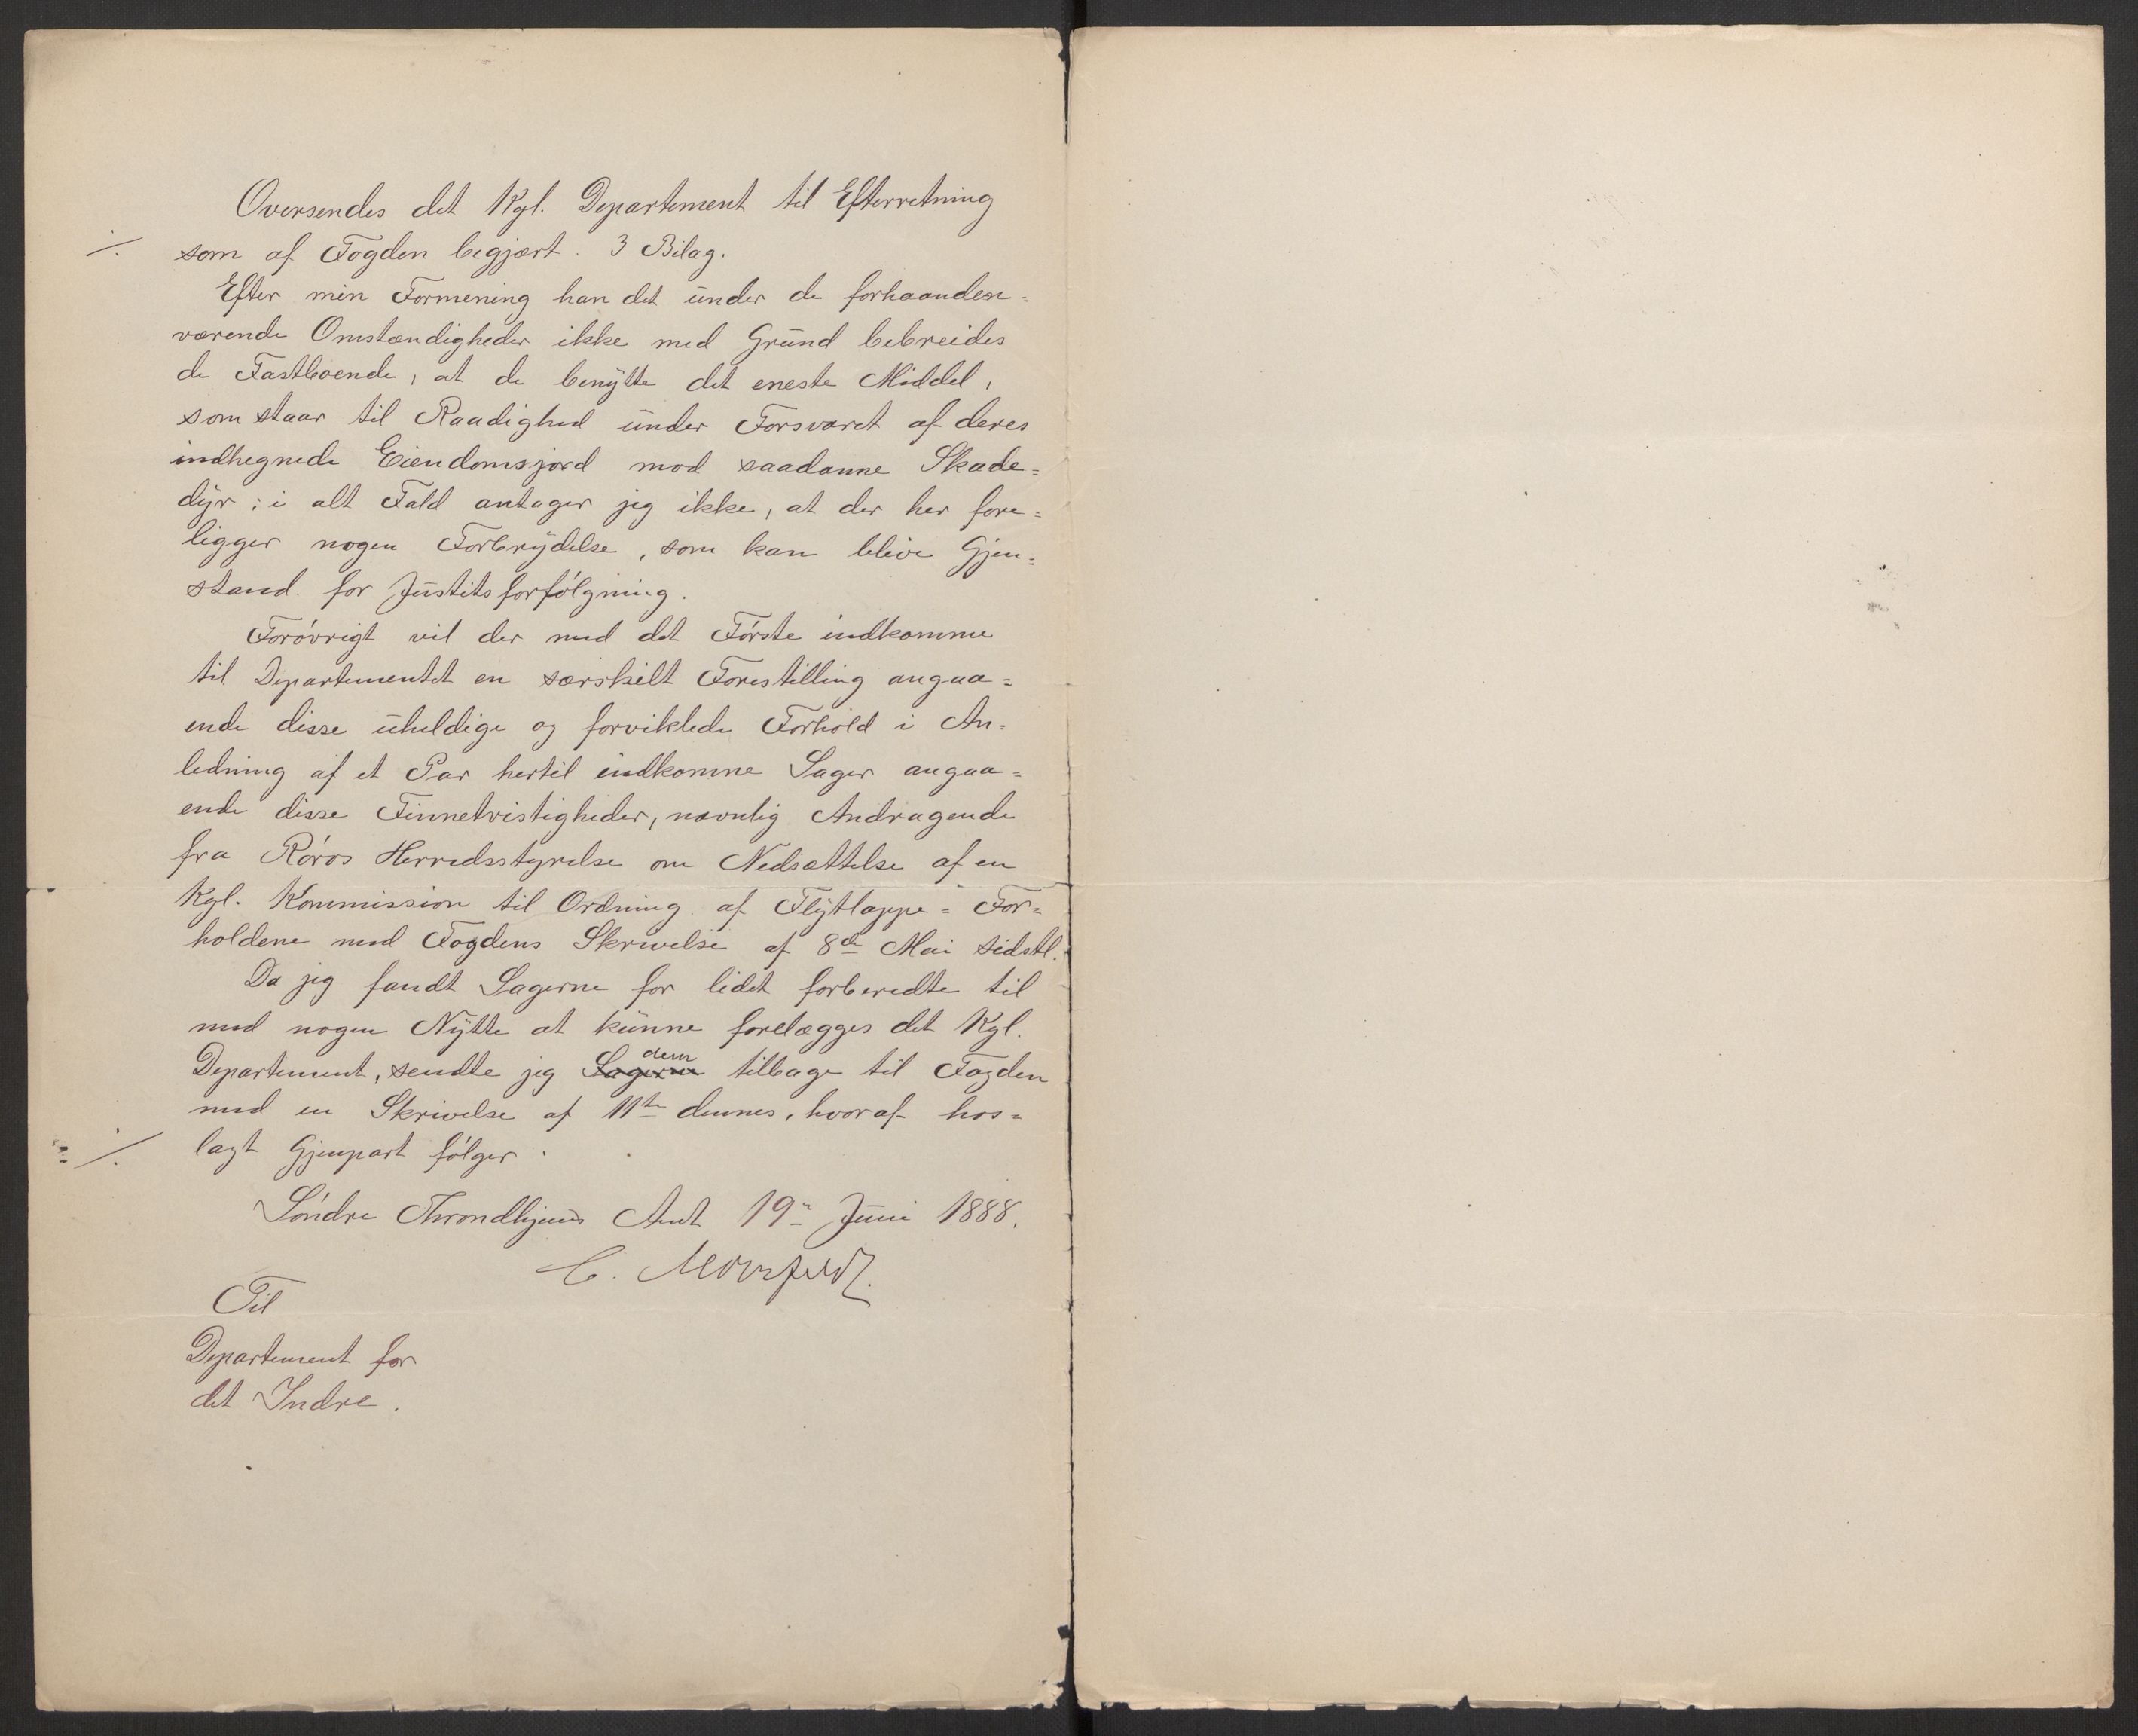 Oversendes det Kgl. Departement til Efterretning
⁒ som af Fogden begjært. 3 Bilag.
Efter min Formening kan det under de forhaanden=
værende Omstændigheder ikke med Grund bebreides
de Fastboende, at de benytte det eneste Middel,
som staar til Raadighed under Forsvaret af deres
indhegnede Eiendomsjord mod saadanne Skade=
dyr; i alt Fald antager jeg ikke, at der her fore=
ligger nogen Forbrydelse, som kan blive Gjen=
stand for Justitsforfölgning.
Forövrigt vil der med det Förste indkomme
til Departementet en særskilt Forestilling angaa=
ende disse uheldige og forviklede Forhold i An=
ledning af et Par hertil indkomne Sager angaa=
ende disse Finnetvistigheder, navnlig Andragende
fra Röros Herredsstyrelse om Nedsættelse af en
Kgl. Kommission til Ordning af Flytlappe=For=
holdene med Fogdens Skrivelse af 8de Mai sidstl.
Da jeg fandt Sagerne for lidet forberedte til
med nogen Nytte at kunne forelægges det Kgl.
Departement, sendte jeg Sagerne dem tilbage til Fogden
med en Skrivelse af 11te dennes, hvoraf hos=
⁒ lagt Gjenpart fölger.
Söndre Throndhjems Amt 19de Juni 1888.
C. Motzfeldt.
Til
Departement for
det Indre.